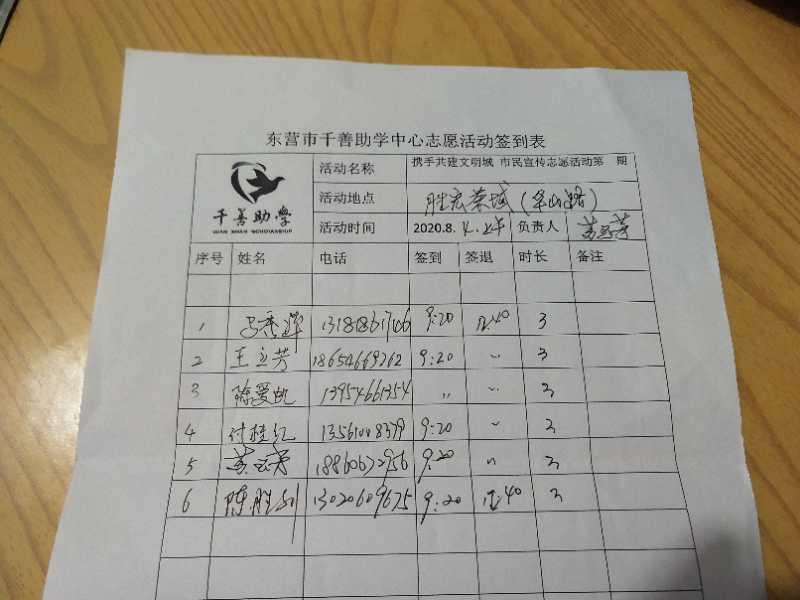 东营市千善助学中心志愿活动签到表
千善助学
QIAN SHAN SCHOLARSHIP
活动名称 携手共建文明城 市民宣传志愿活动第 期
活动地点 胜宏荣域(泰山路)
活动时间 2020.8.4.上午 负责人
序号 姓名 电话 签到 签退 时长 备注
1 9:20 12:40 3
2 王立芳 18654669262 9:20 〃 3
3 陈爱凯 13954661354 〃 〃 3
4 付桂红 13561008379 9:20 〃 3
5 18860672956 9:20 〃 3
6 陈胜利 13020609675 9:20 12:40 3